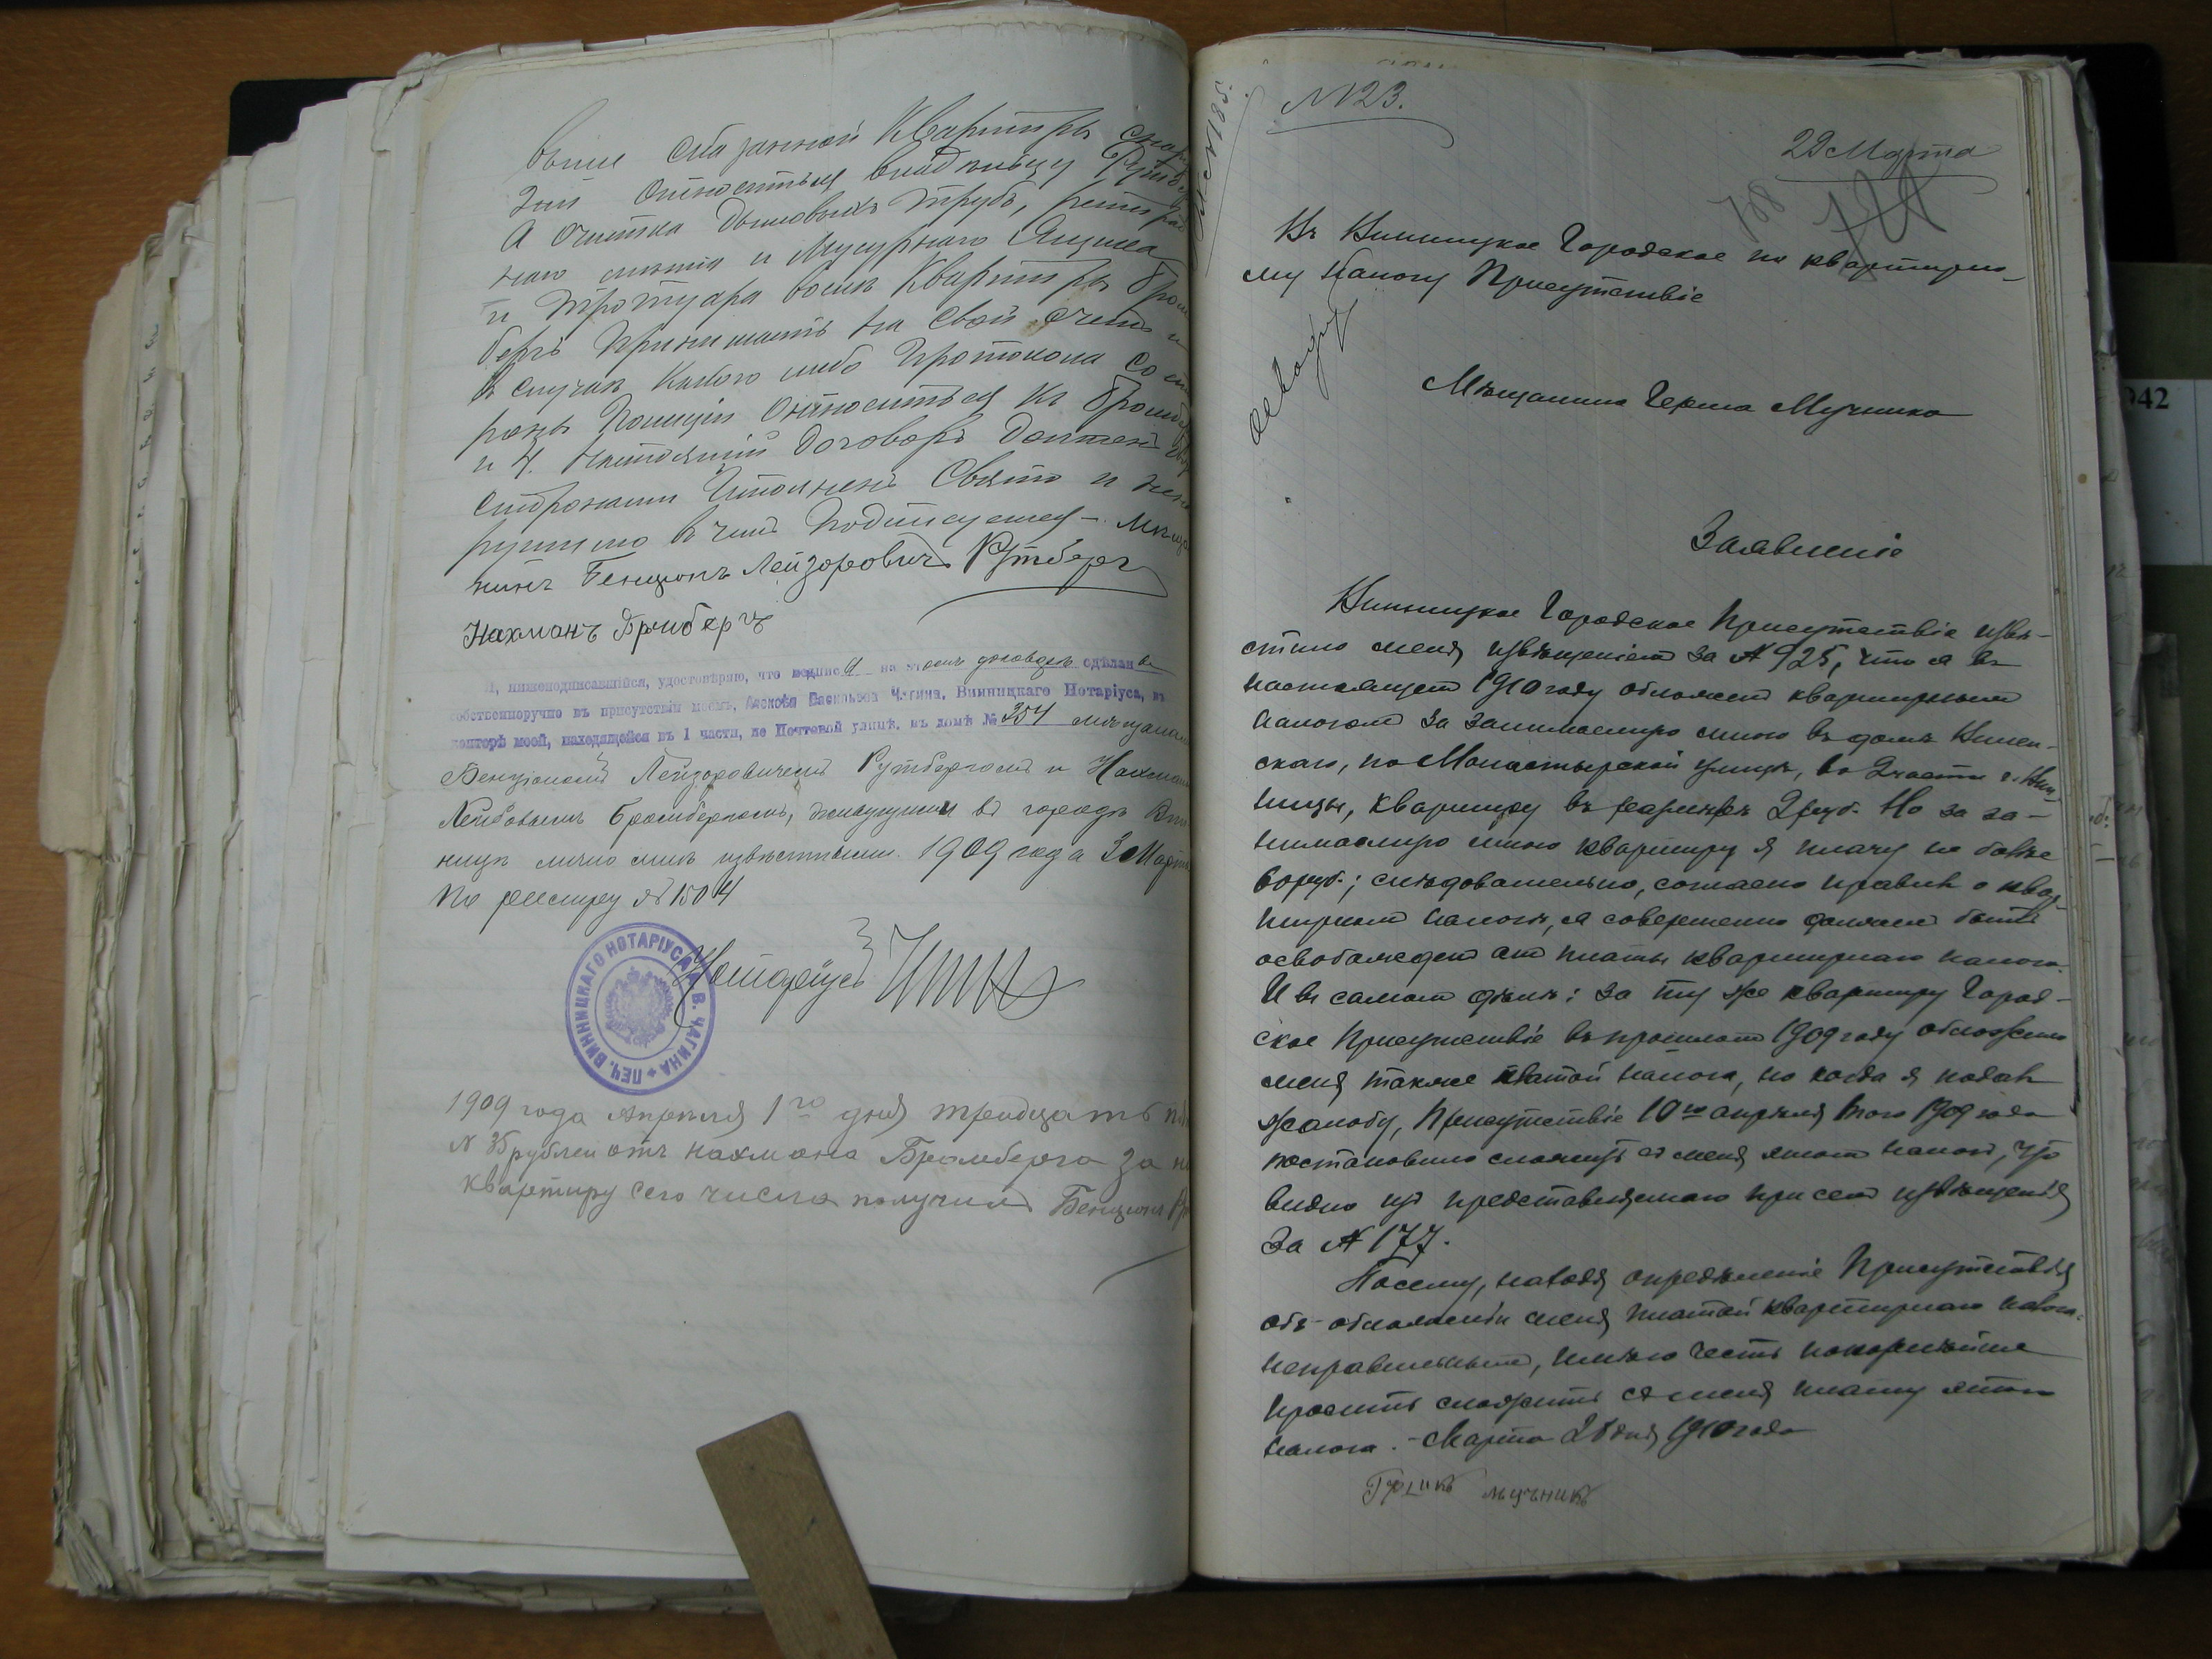 выше сказанной Квартиры
относиться владельцу
А Очистка Дымовыхъ трубъ,
и Мусорнаго Ящика
и Тротуара Квартиры
бергъ Принимаетъ на Свой Счетъ и
В случаѣ Какого либо Протокола со
Полиціи Относиться Къ
и Ч. Настоящій Договоръ Долженъ
Сторонами Исполненъ Свято и
въ чемъ Подписуемся – Мѣща
нинъ Бенціонъ Лейзоровичъ Рутбергъ
Нахманъ Бромбергъ
Я, нижеподписавшійся, удостовѣряю, что подпис и на этомъ договорѣ сдѣланы
собственноручно въ присутствіи моемъ, Алексѣя Васильева Чагина, Винницкаго Нотаріуса, въ
конторѣ моей, находящейся въ I части, по Почтовой улицѣ, въ домѣ № 354 мѣщанами
Бенціономъ Лейзоровичемъ Рутбергомъ и Нахманомъ
Лейбовымъ Бромбергомъ, живущими въ городѣ Вин
ницѣ лично мнѣ извѣстными. 1909 года Марта
По реестру № 1504
Нотаріусъ
ПЕЧ. ВИННИЦКАГО НОТАРІУСА А. В. ЧАГИНА
1909 года Апреля 1го дня тридцать
№ 35 рублей отъ Нахмана Бромберга за
квартиру сего числа получилъ Бенціонъ
№ 23.
29 Марта
728
Въ Винницкое Городское по квартирно-
му Налогу Присутствіе
Мѣщанина Герша Мучника
Заявленіе
Винницкое Городское Присутствіе извѣ-
стило меня извѣщеніемъ за № 925, что я въ
настоящемъ 1910 году обложенъ квартирнымъ
налогомъ за занимаемую мною въ домѣ
скаго, по Монастырской улицѣ, во 2 части г. Вин-
ницы, квартиру въ размѣрѣ 2 руб. Но за за-
нимаемую мною квартиру я плачу не болѣе
руб.; слѣдовательно, согласно правилъ о квар-
тирномъ налогѣ, я совершенно долженъ быть
освобожденъ отъ платы квартирнаго налога.
И въ самомъ дѣлѣ: за ту же квартиру Город-
ское Присутствіе въ прошломъ 1909 году обложило
меня также платой налога, но когда я подалъ
жалобу, Присутствіе 10го апрѣля того 1909 года
постановило сложить съ меня этотъ налогъ, что
видно изъ представляемаго при семъ извѣщенія
За № 177.
Посему, находя опредѣленіе Присутствія
объ обложеніи меня платой квартирнаго налога
неправильнымъ, имѣю честь покорнѣйше
просить сложить съ меня плату этого
налога. – Марта 28 дня 1910 года
Мучникъ